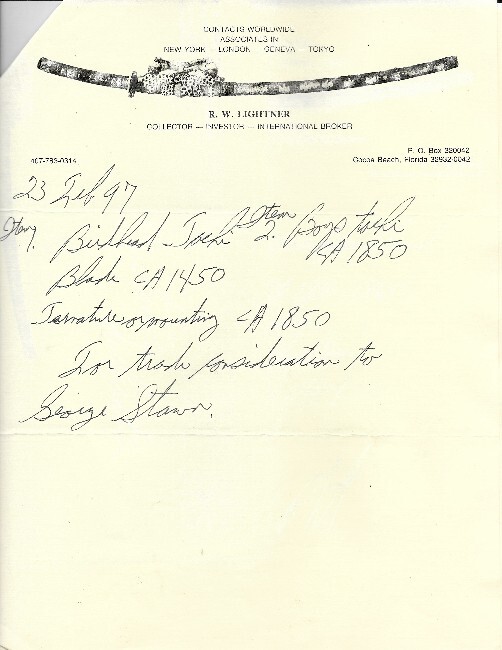 CONTACTS WORLDWIDE
ASSOCIATES IN
NEW YORK — LONDON — GENEVA — TOKYO
R. W. LIGHTNER
COLLECTOR — INVESTOR — INTERNATIONAL BROKER
407-783-0314
P. O. Box 320042
Cocoa Beach, Florida 32932-0042
23 Feb 97
Item 1. Birdhead Tachi Item 2. Boys tachi
CA 1850
Blade CA 1450
or mounting CA 1850
For trade consideration to
George Stawn.